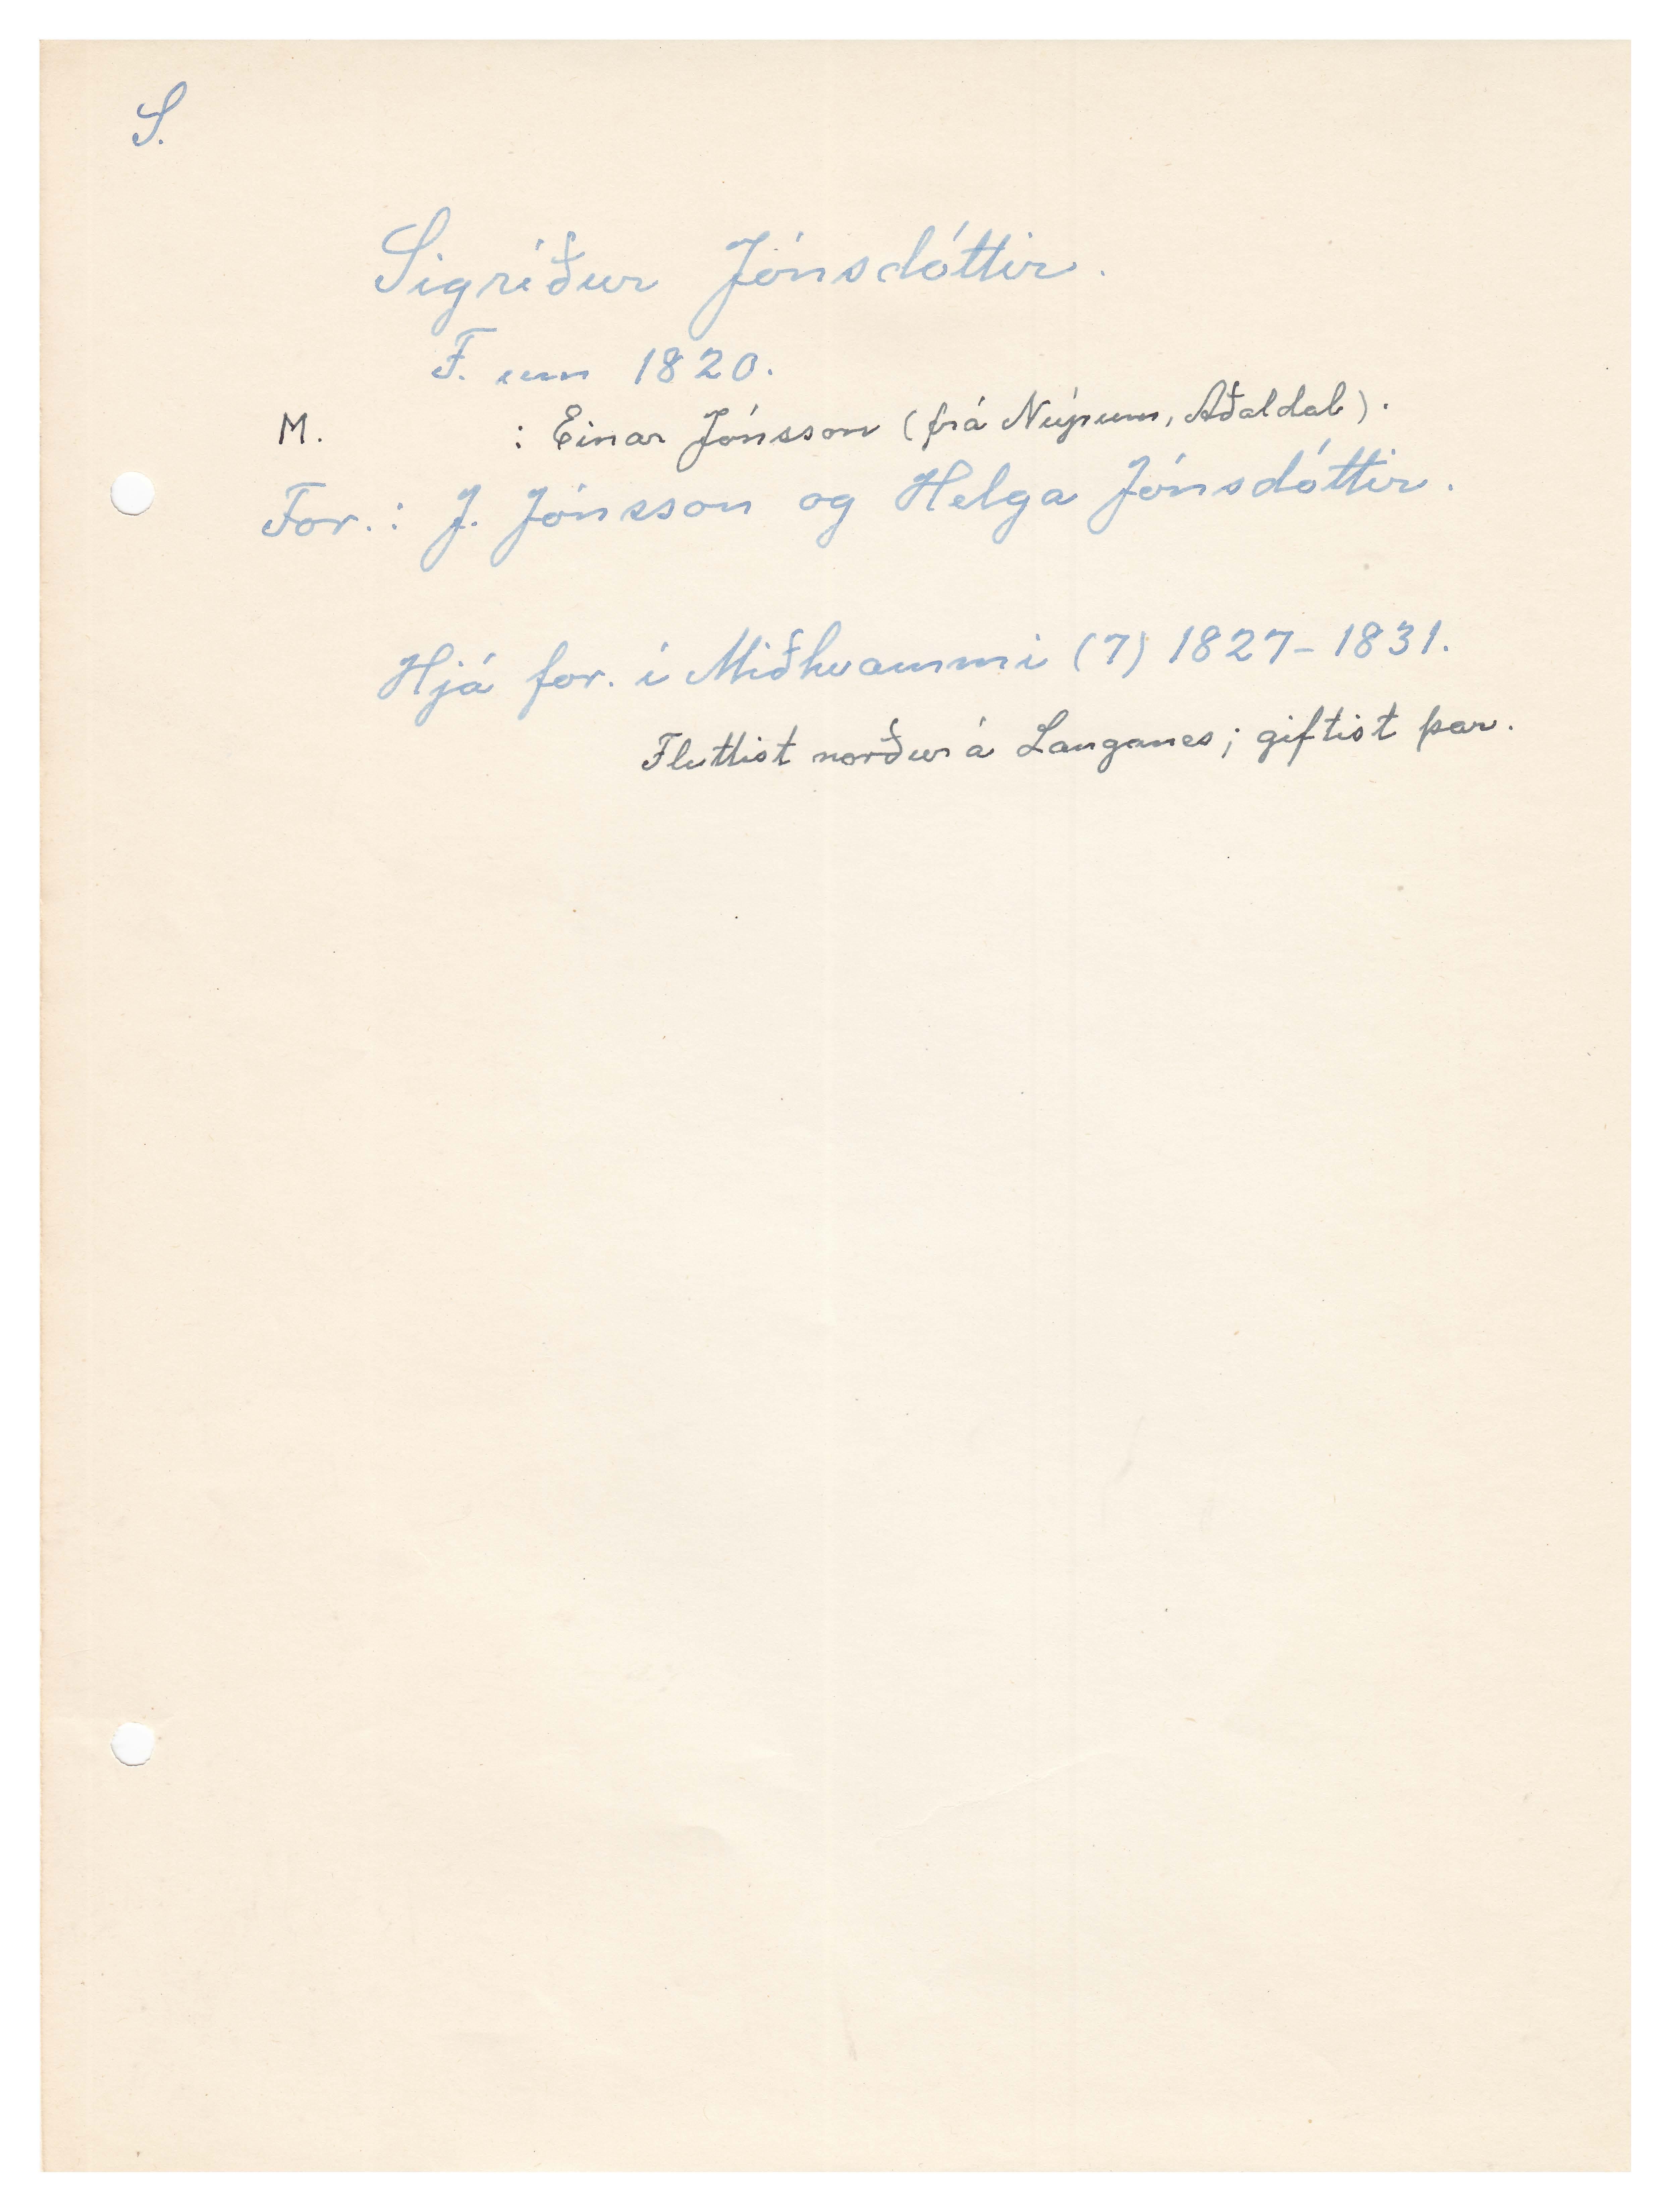 S.
Sigríður Jónsdóttir.
F. um 1820.
M. : Einar Jónsson (frá Núpum, Aðaldal).
For.: J. Jónsson og Helga Jónsdóttir.
Hjá for. í Miðhvammi (7) 1827-1831.
Fluttist norður á Langanes; giftist þar.